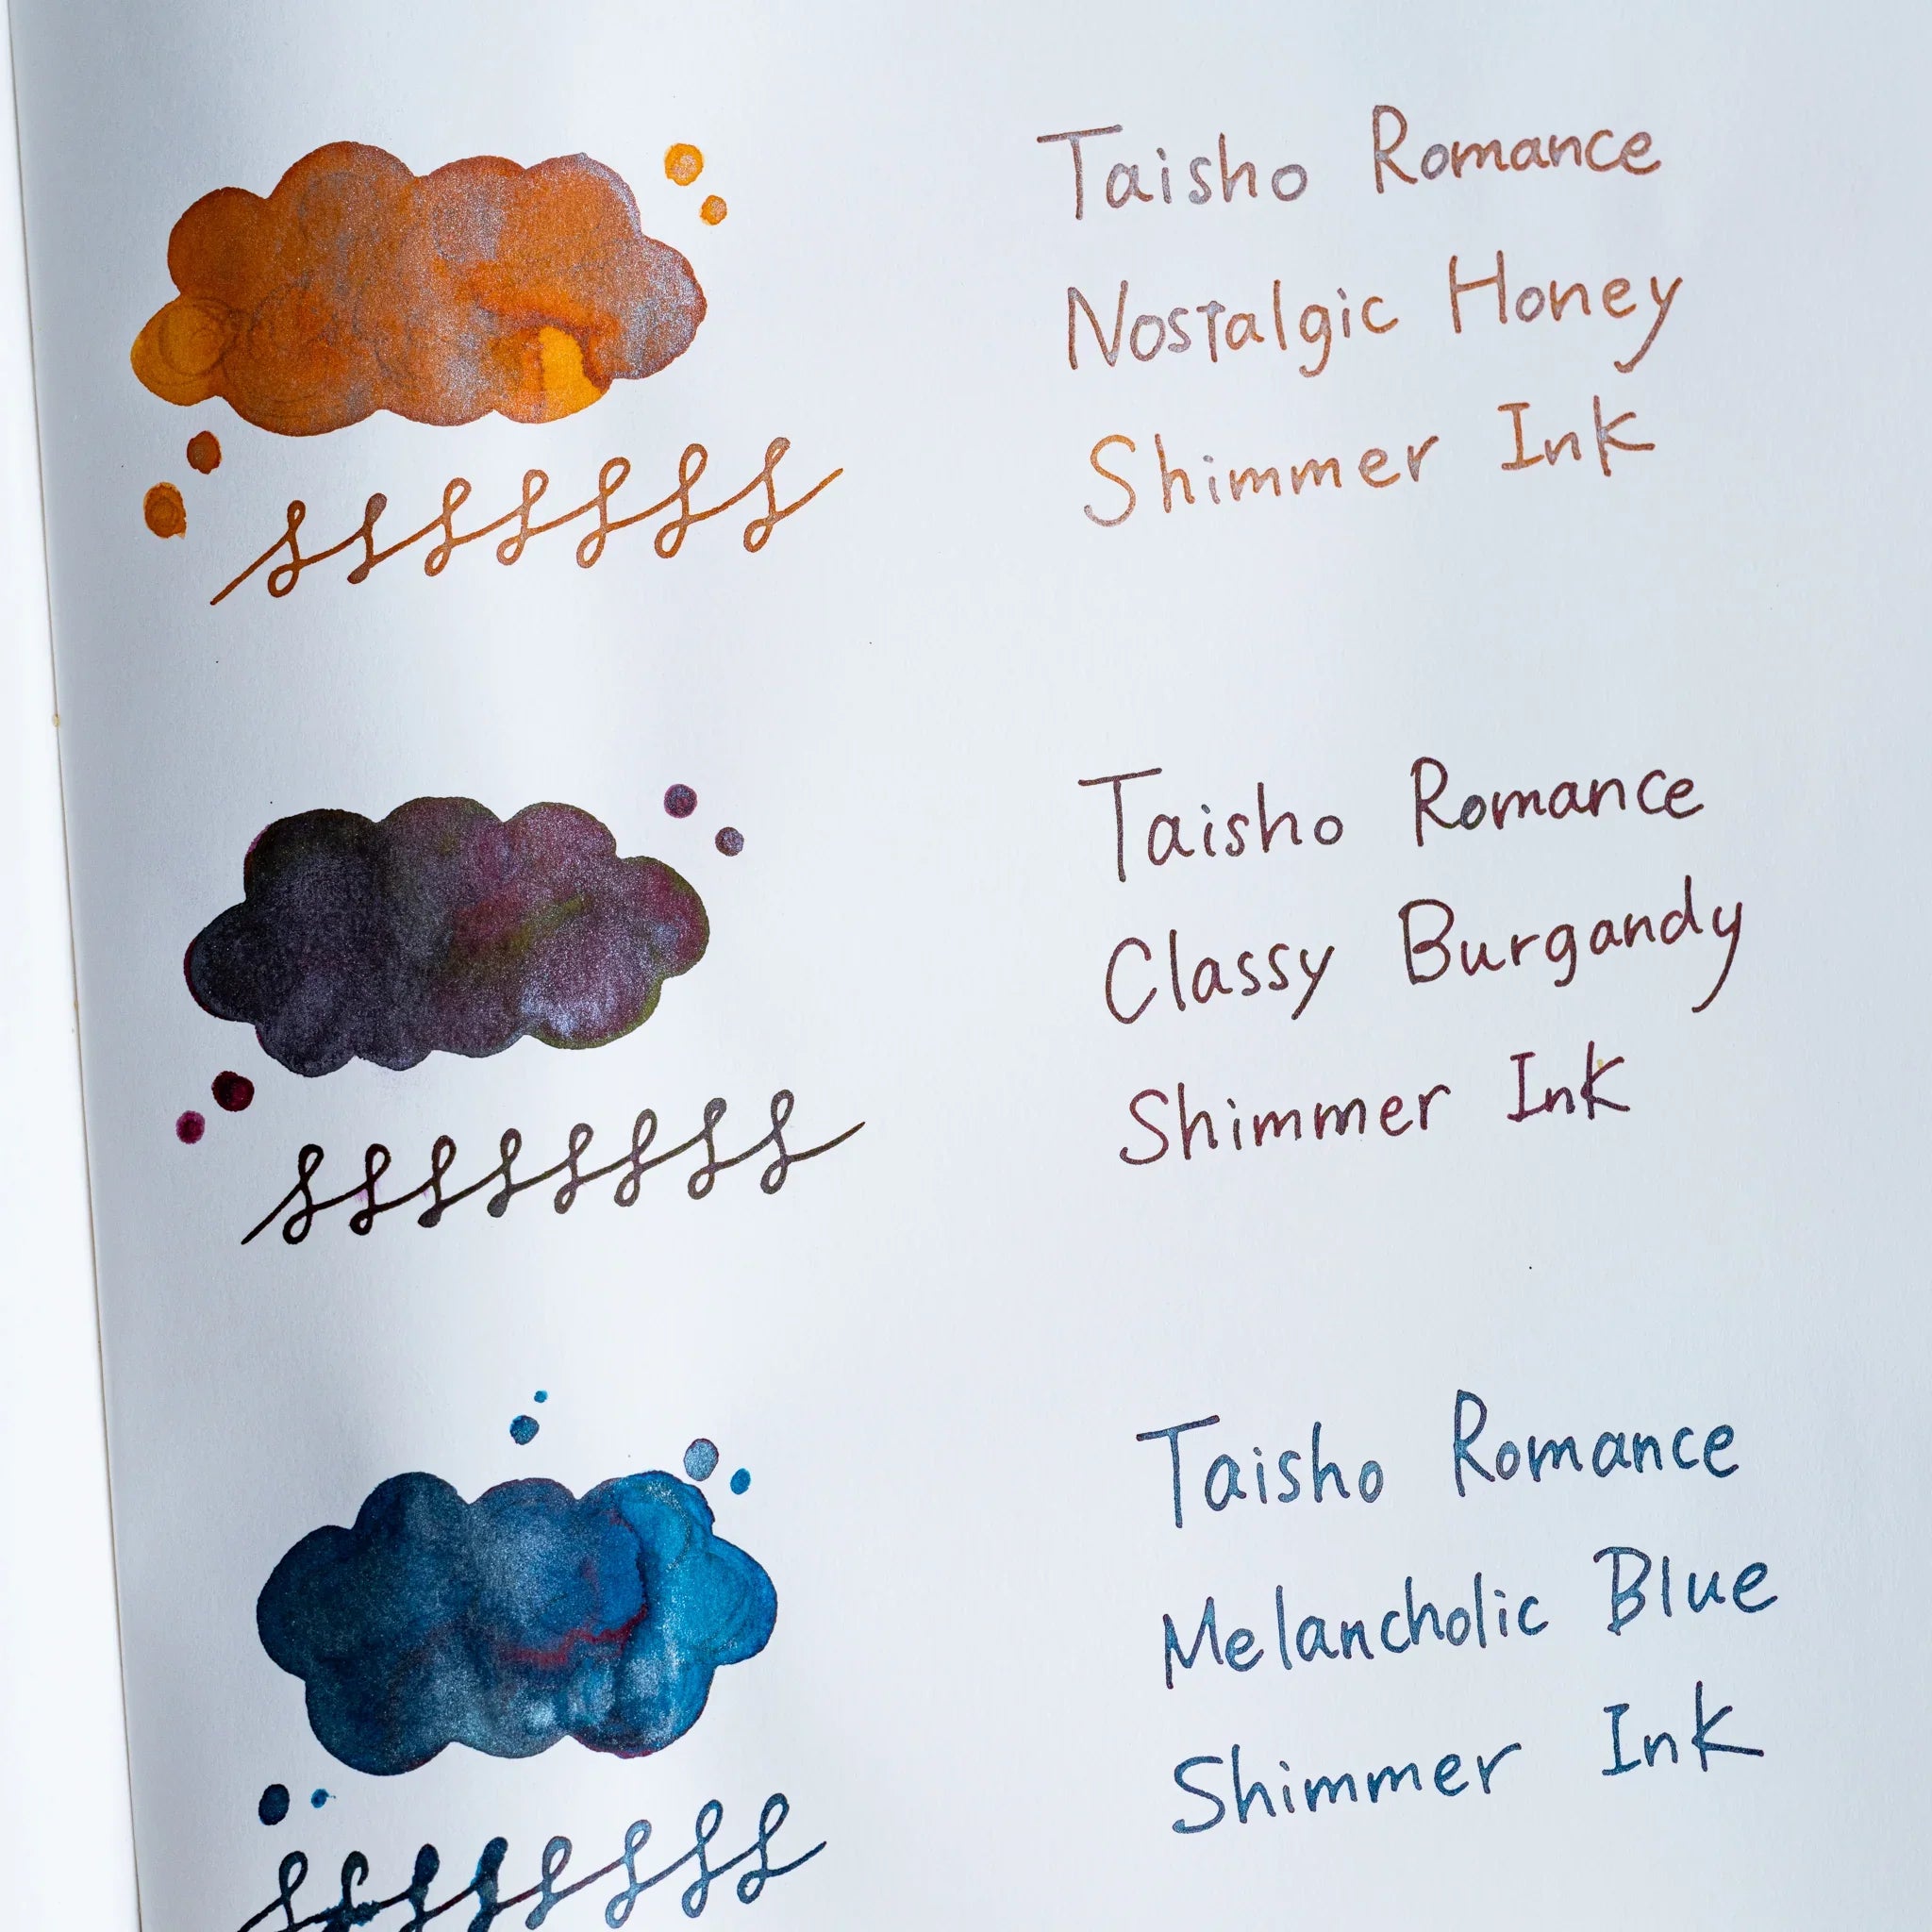 Taisho Romance
Nostalgic Honey
Shimmer Ink
Taisho Romance
Classy Burgandy
Shimmer Ink
Taisho Romance
Melancholic Blue
Shimmer Ink